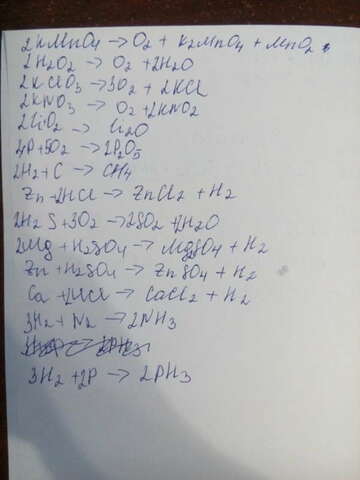 2KMnO4 → O2 + K2MnO4 + MnO2
2H2O2 → O2 + 2H2O
2KClO3 → 3O2 + 2KCl
2KNO3 → O2 + 2KNO2
→ Li2O
4P + 5O2 → 2P2O5
2H2 + C → CH4
Zn + 2HCl → ZnCl2 + H2
2H2S + 3O2 → 2SO2 + 2H2O
+ H2SO4 → + H2
Zn + H2SO4 → ZnSO4 + H2
Ca + 2HCl → CaCl2 + H2
3H2 + N2 → 2NH3
3H2 + 2P → 2PH3